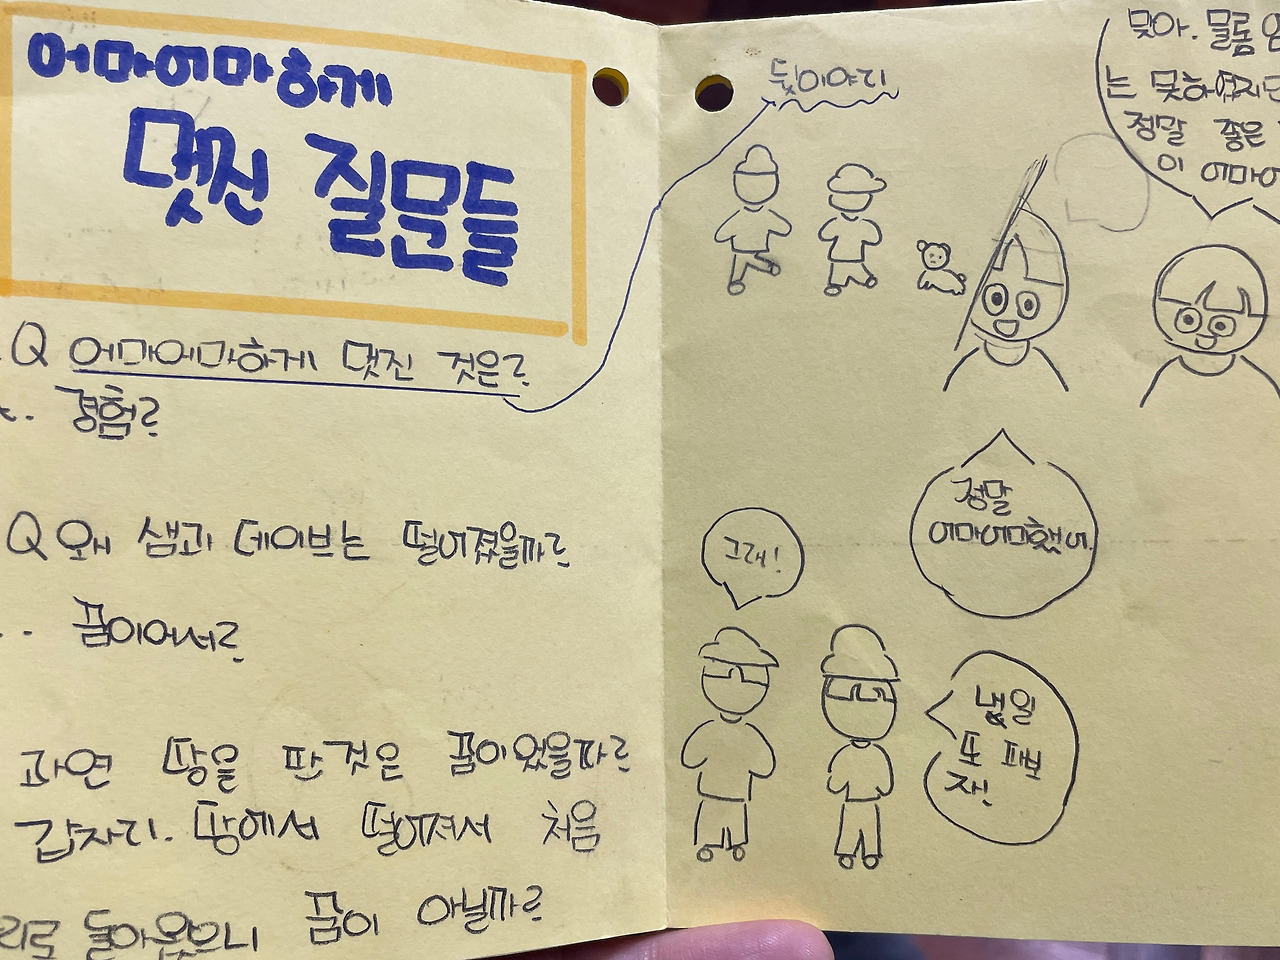 어마어마하게
멋진 질문들
Q 어마어마하게 멋진 것은?
경험?
Q 왜 샘과 데이브는 떨어졌을까?
꿈이어서?
과연 땅을 판것은 꿈이었을까?
갑자기. 땅에서 떨어져서 처음
리로 돌아왔으니 꿈이 아닐까?
뒷이야기
맞아. 물론
는 못하였지만
정말 좋은
이 어마어
정말
어마어마했어.
그래!
내일
또 파보
자!